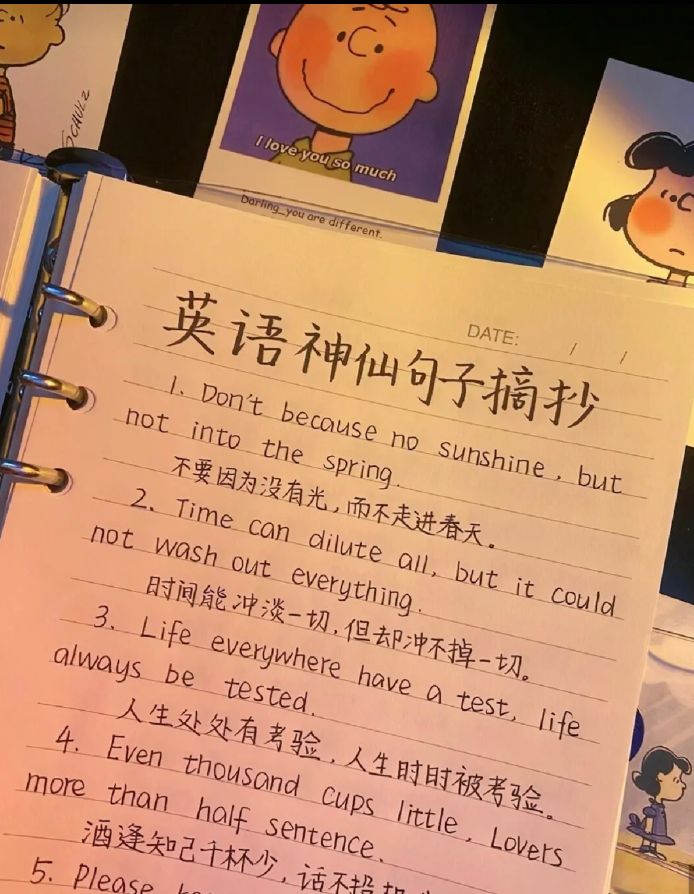 SCHULZ
I love you so much
Darling_you are different.
DATE: / /
英语神仙句子摘抄
1. Don't because no sunshine, but
not into the spring.
不要因为没有光,而不走进春天。
2. Time can dilute all, but it could
not wash out everything.
时间能冲淡一切,但却冲不掉一切。
3. Life everywhere have a test, life
always be tested.
人生处处有考验,人生时时被考验。
4. Even thousand cups little, Lovers
more than half sentence.
酒逢知己千杯少,话不投
5. Please